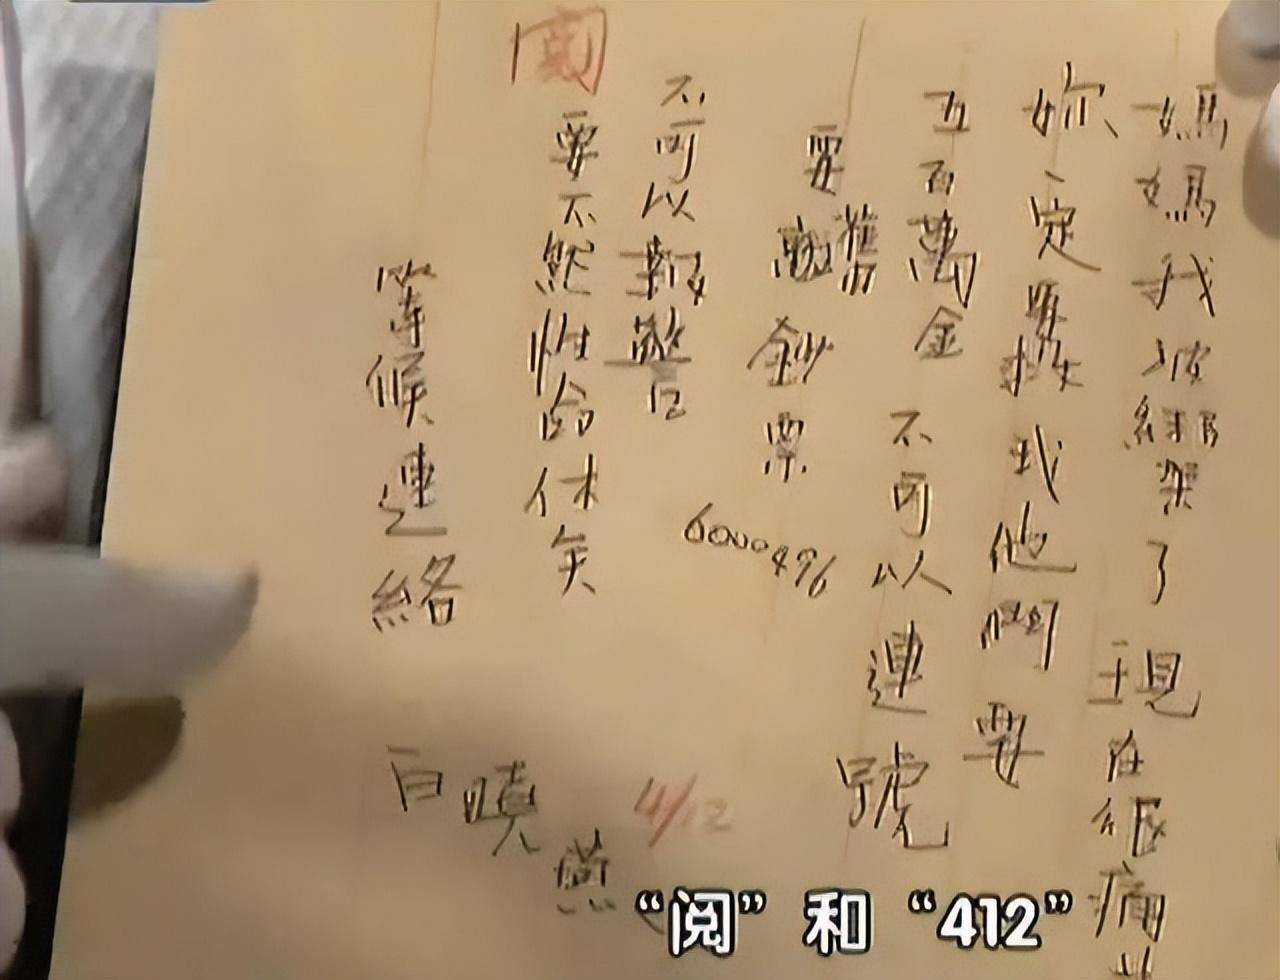 媽媽我被綁架了 現在很痛
妳一定要救我他們要
五百萬金 不可以連號
要舊鈔票
6000496
不可以報警
閱
要不然性命休矣
等候連絡
白曉燕
4/12
“阅”和“412”